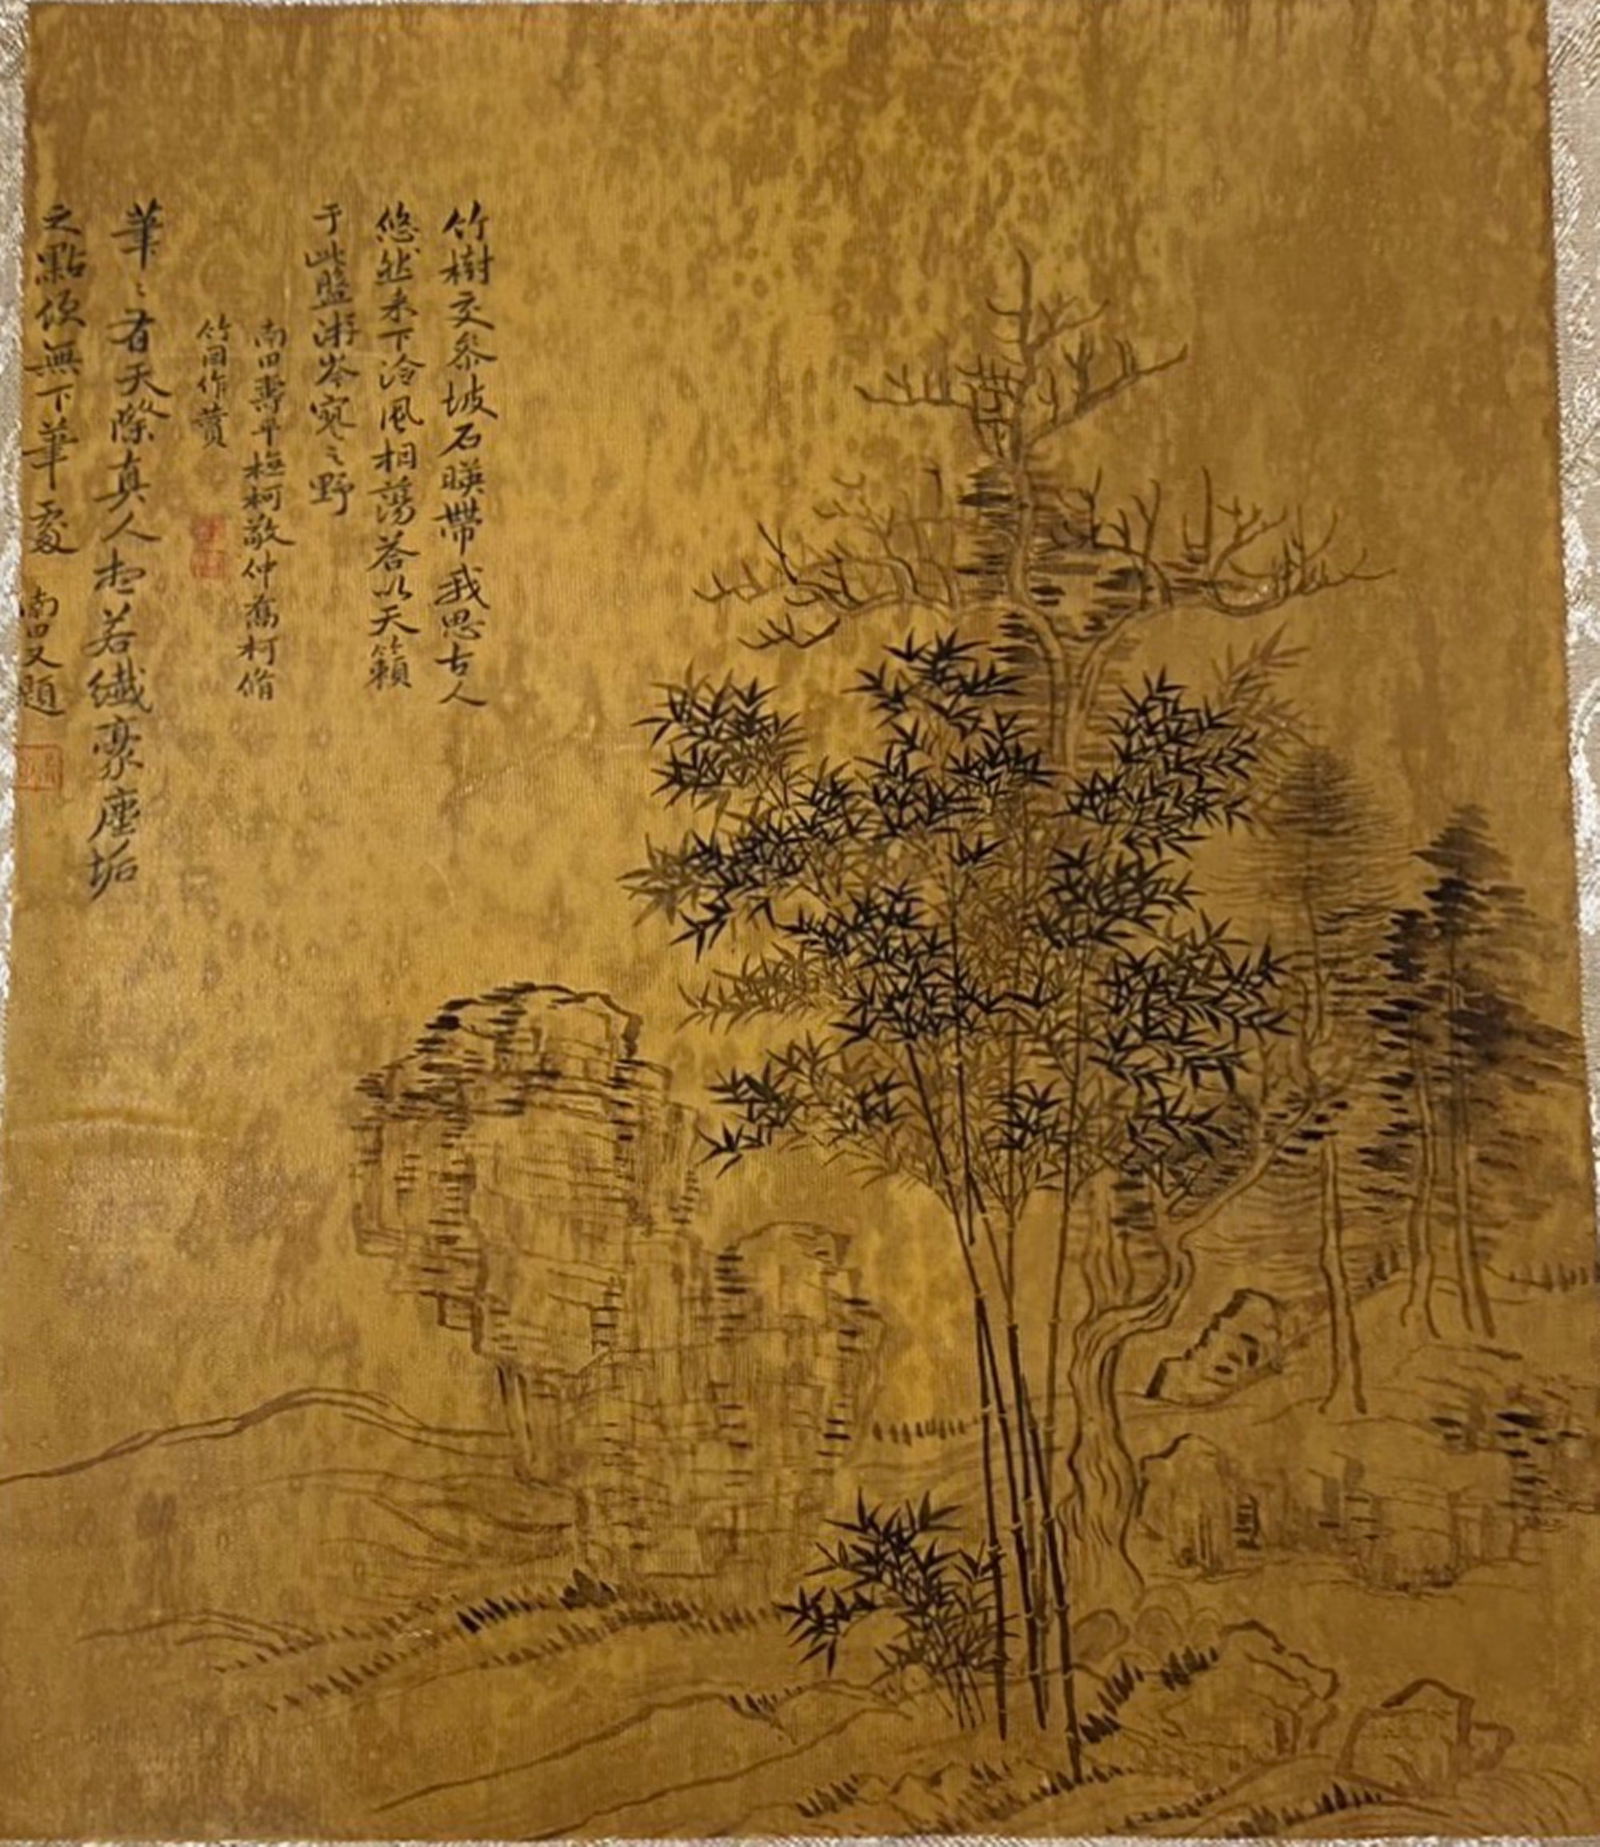 竹樹交參坡石暎帶我思古人
悠然來下泠風相蕩荅以天籟
于此盤游岑寂之野
南田壽平橅柯敬仲喬柯脩
竹图作賛
華〻有天際真人想若纎豪塵垢
之點便無下華處 南田又題